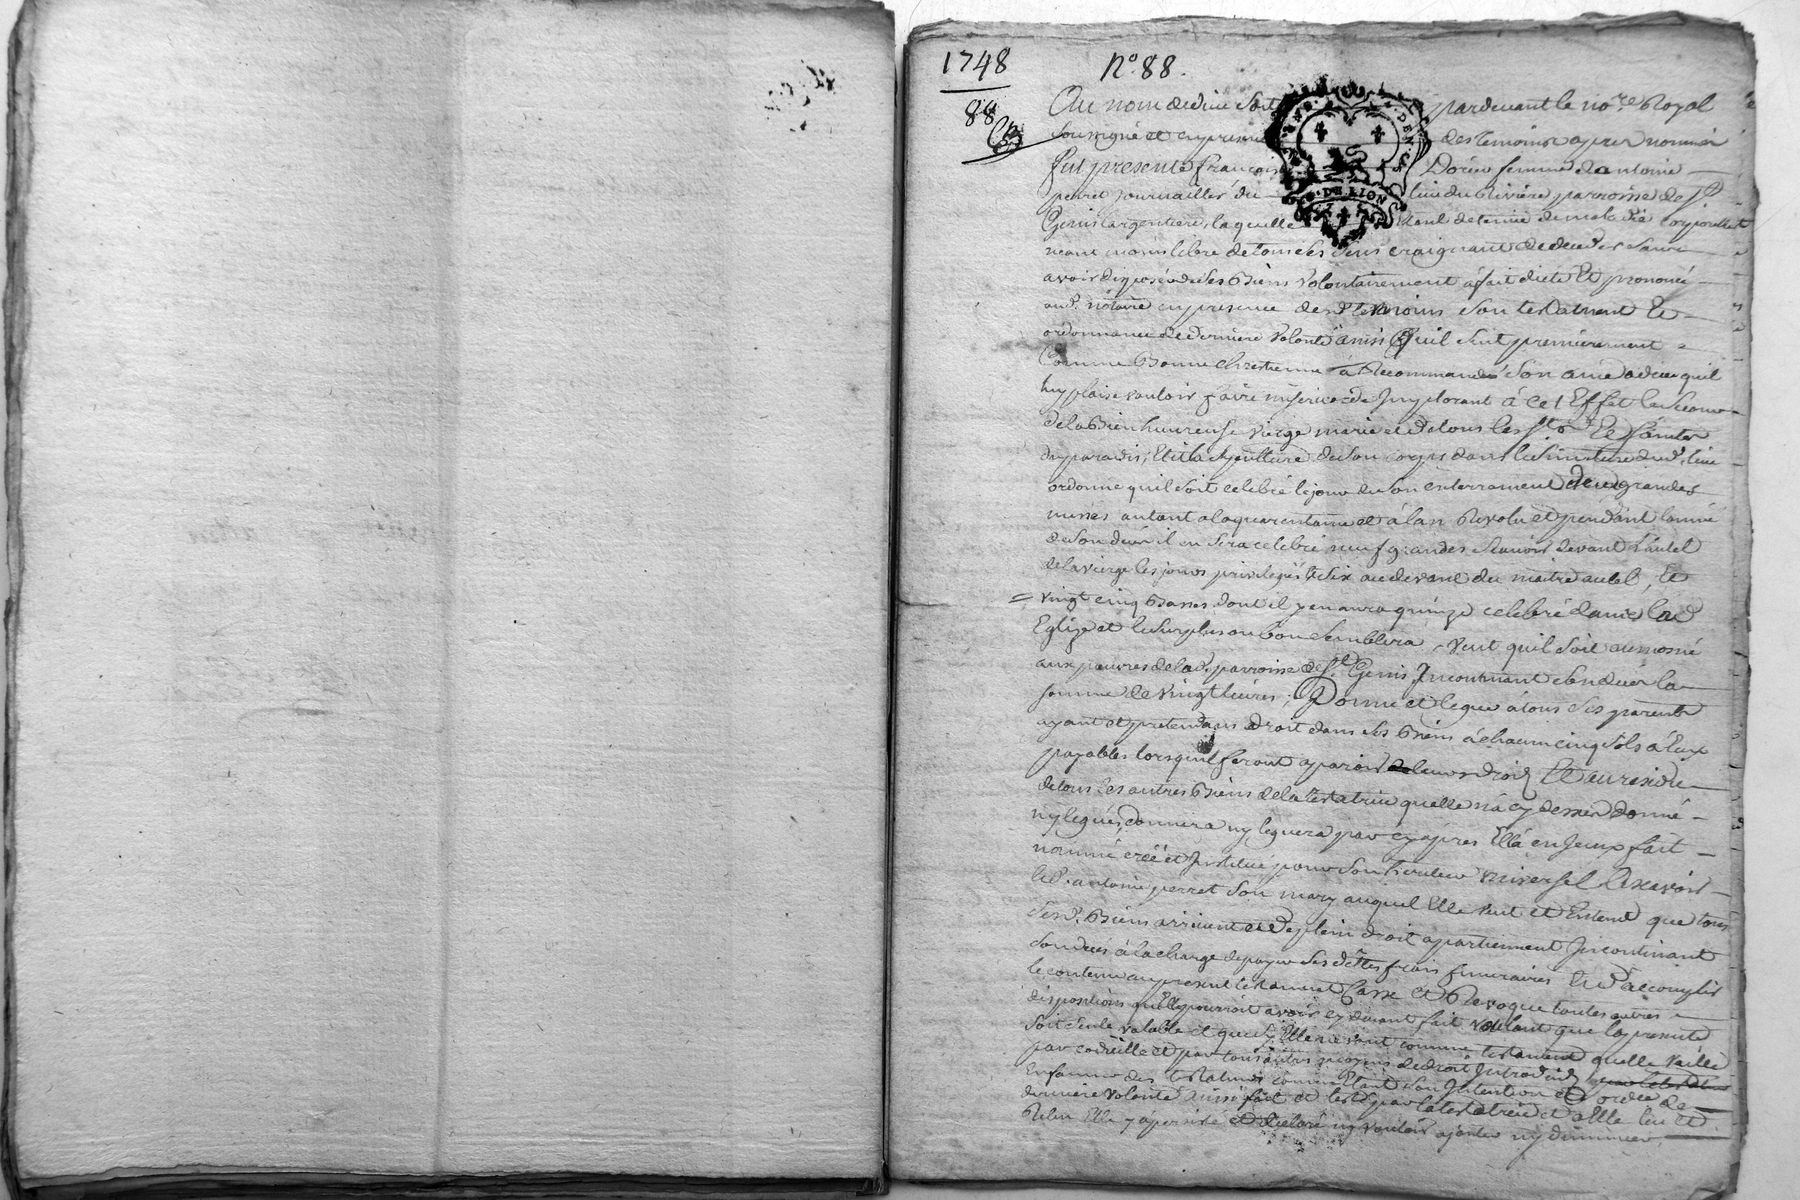 1748 n° 88.
88
Au nom de dieu soit pardevant le no.re Royal
soussigné et en presence des temoins apres nommés
fut presente françoise Dorieu femme d'antoine
perret journailler du lieu du Riviere parroisse de s.t
Genis largentiere, laquelle de maladie corporelle
neant moins libre de tous ses sens craignant de deceder sans
avoir disposé de ses Biens volontairement à fait dicté Et prononcé
aud. notaire en presence desd. temoins son testament Et
ordonnance de derniere volonté ainsi Quil suit premierement
Comme Bonne chrestienne à Recommandé son ame à dieu quil
luy plaise vouloir faire misericorde Implorant à cet Effet le secour
de la Bienheureuse vierge marie et de tous les s.ts Et saintes
du paradis, Elit la sepulture de son corps dans le simetiere dud. lieu
ordonne quil soit celebré le jour de son enterrement deux grandes
messes autant a la quarantaine et à lan Revolu et pendant lannée
de son deüil il en sera celebré neuf grandes sçavoir devant l'autel
de la vierge les jours privilegiés & six au devant du maitre autel, Et
vingt cinq Basses dont il y en aura quinze celebré dans lad.
Eglize et le surplus ou bon semblera, veut quil soit aumosné
aux pauvres de lad. parroisse de s.t Genis Incontinant son deces la
somme de vingt livres; Donne et legue à tous ses parents
ayant et pretendans droit dans ses Biens à chacun cinq sols à Eux
payables lorsquil feront aparoir de leurs droits Et au residu
de tous les autres Biens de la testatrice quelle n'a cy dessus donné
ny legués, donnera ny leguera par cy apres Ella en Jceux fait
nommé créé et Institué pour son heritier universel Ledit
led. antoine perret son mary auquel Elle veut et Entend que tous
sesd. Biens arrivent et de plein droit apartiennent Jncontinant
son deces à la charge de payer ses dettes frais funeraires Et d'accomplir
le contenu au present testament Casse Et Revoque toutes autres
dispositions quelle pourroit avoir cy devant fait voulant que la presente
soit seule valable et que si Elle ne vaut comme testament quelle vaille
par codicille et par tous autres moyens de droit Introduits
En faveur des testateurs connoissant son Intention et ordre de
derniere volonté ainsi fait et testé par la testatrice et a Elle lu et
Relu Elle y a persisté et declaré ny vouloir ajouter ny diminuer,
DE LION